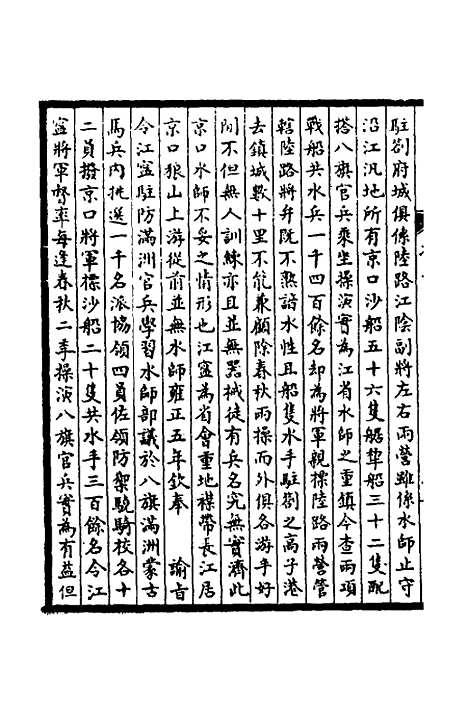 駐劄府城俱係陸路江陰副將左右兩營雖係水師止守
沿江汛地所有京口沙船五十六隻艍犂船三十二隻配
搭八旗官兵乘坐操演實為江省水師之重鎮今查兩項
戰船共水兵一千四百餘名却為將軍親標陸路兩營管
轄陸路將弁既不熟諳水性且船隻水手駐劄之高子港
去鎮城數十里不能兼顧除春秋兩操而外俱各游手好
閒不但無人訓練亦且並無器械徒有兵名究無實濟此
京口水師不妥之情形也江寧為省會重地襟帶長江居
京口狼山上游從前並無水師雍正五年欽奉　諭旨
令江寧駐防滿洲官兵學習水師部議於八旗滿洲蒙古
馬兵內挑選一千名派協領四員佐領防禦驍騎校各十
二員撥京口將軍標沙船二十隻共水手三百餘名令江
寧將軍督率每逢春秋二季操演八旗官兵實為有益但